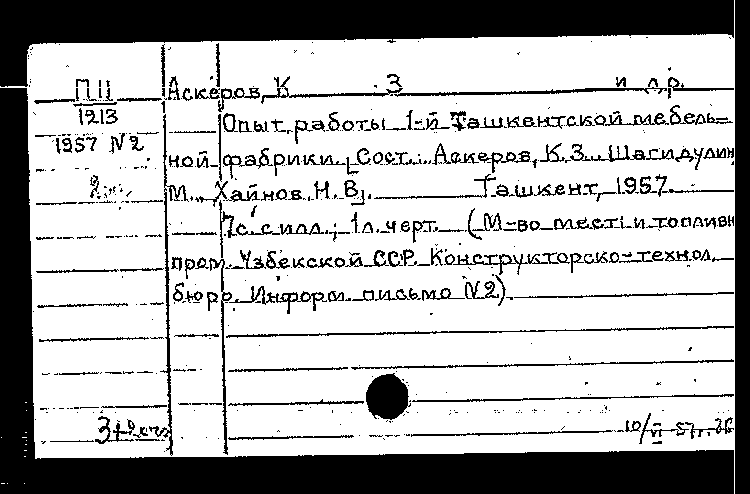 П11 Аскеров, К. З. и др.
1213 Опыт работы 1-й Ташкентской мебель-
1957 N2 ной фабрики. [Сост.: Аскеров, К.З., Шагидулин
М., Хайнов, Н. В.]. Ташкент, 1957.
7с. с илл.; 1л. черт. (М-во местн. и топливн
пром. Узбекской ССР. Конструкторско-технол.
бюро. Информ. письмо N2).
10/VI 57г.